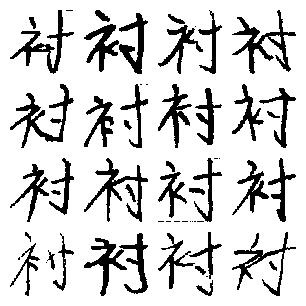 衬衬衬衬
衬衬衬衬
衬衬衬衬
衬衬衬衬